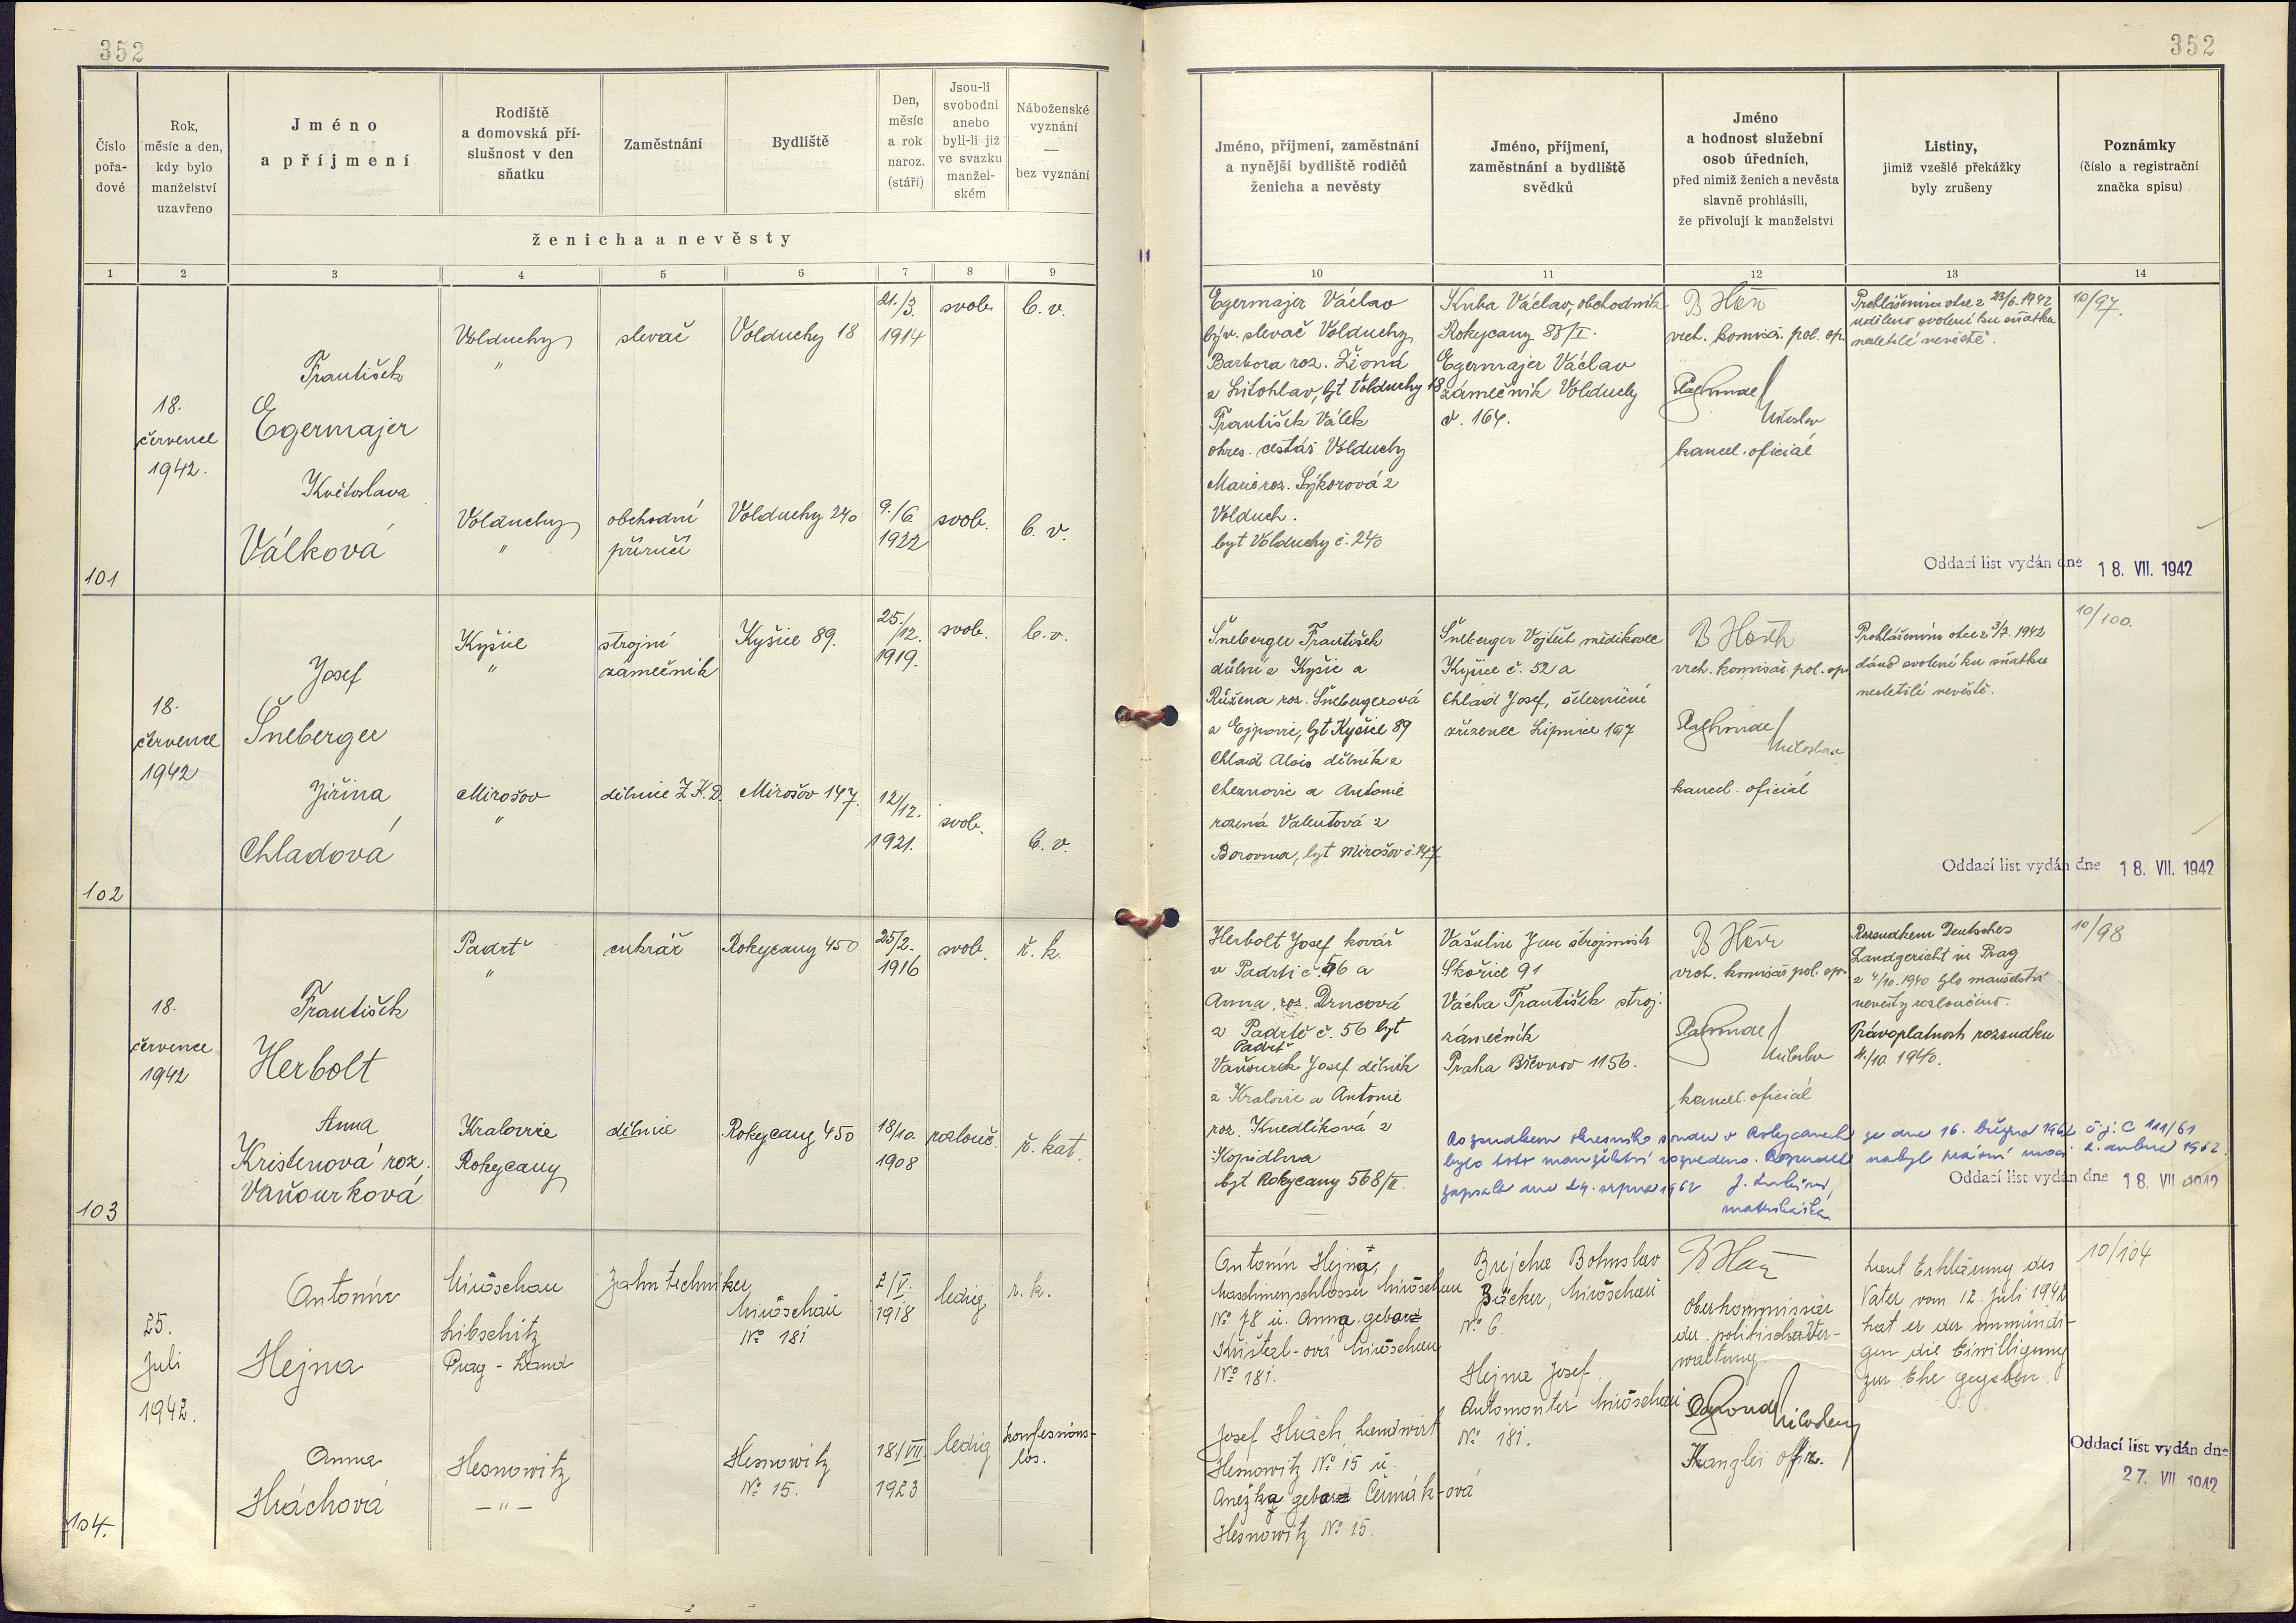 352
352
Číslo pořa-dové
Rok, měsíc a den, kdy bylo manželství uzavřeno
Jméno a příjmení
Rodiště a domovská pří-slušnost v den sňatku
Zaměstnání
Bydliště
Den, měsíc a rok naroz. (stáří)
Jsou-li svobodni anebo byli-li již ve svazku manžel-ském
Náboženské vyznání — bez vyznání
ženicha a nevěsty
Jméno, příjmení, zaměstnání a nynější bydliště rodičů ženicha a nevěsty
Jméno, příjmení, zaměstnání a bydliště svědků
Jméno a hodnost služební osob úředních, před nimiž ženich a nevěsta slavně prohlásili, že přivolují k manželství
Listiny, jimiž vzešlé překážky byly zrušeny
Poznámky (číslo a registrační značka spisu)
1 2 3 4 5 6 7 8 9
10 11 12 13 14
101
18.
července
1942.
František
Egermajer
Volduchy
"
slevač
Volduchy 18
21./3.
1914
svob.
b. v.
Květoslava
Válková
Volduchy
"
obchodní
příručí
Volduchy 240
9./6.
1922
svob.
b. v.
Egermajer Václav
býv. slevač Volduchy
Barbora roz. Zímá
z Litohlav, byt Volduchy 18
František Válek
okres. cestář Volduchy
Marie roz. Sýkorová z
Volduch.
byt Volduchy č. 240
Kuba Václav, obchodník
Rokycany 83/I.
Egermajer Václav
zámečník Volduchy
č. 164.
vrch. komisař. pol. sp.
Miloslav
kancel. oficiál
Prohlášením otce z 23/6. 1942
uděleno svolení ku sňatku
nezletilé nevěstě.
10/97.
Oddací list vydán dne 18. VII. 1942
102
18.
července
1942
Josef
Šneberger
Kyšice
"
strojní
zámečník
Kyšice 89.
25./12.
1919.
svob.
b. v.
Jiřina
Chladová
Mirošov
"
dělnice Z.K.D.
Mirošov 147.
12/12.
1921.
svob.
b. v.
Šneberger František
důlní z Kyšic a
Růžena roz. Šnebergerová
z Ejpovic, byt Kyšice 89
Chlad Alois dělník z
a Antonie
rozená Valentová z
Borovna, byt Mirošov č. 147
Šneberger Vojtěch mědikovec
Kyšice č. 52 a
Chlad Josef, železniční
zřízenec Lipnice 107
vrch. komisař. pol. sp.
Miloslav
kancel. oficiál
Prohlášením otce z 3/7. 1942
dáno svolení ku sňatku
nezletilé nevěstě.
10/100.
Oddací list vydán dne 18. VII. 1942
103
18.
července
1942
František
Herbolt
Padrť
"
cukrář
Rokycany 450
25/2.
1916
svob.
ř. k.
Anna
Kristenová roz.
Vaňourková
Kralovice
Rokycany
dělnice
Rokycany 450
18/10.
1908
rozlouč.
ř. kat.
Herbolt Josef kovář
v Padrti č 56 a
Anna, roz. Drncová
z Padrtě č. 56 byt
Padrť
Vaňourek Josef dělník
z Kralovic a Antonie
roz. Knedlíková z
Kopidlna
byt Rokycany 568/II.
Vašulin Jan strojmistr
Skořice 91
Vácha František stroj.
zámečník
Praha Břevnov 1156.
vrch. komisař pol. sp.
Miloslav
kancel. oficiál
Rozsudkem Deutsches
Landgericht in Prag
z 4/10. 1940 bylo manželství
nevěsty rozloučeno.
Právoplatnost rozsudku
4./10 1940.
10/98
Rozsudkem okresního soudu v Rokycanech ze dne 16. března 1962 č.j. C 111/61
bylo toto manželství rozvedeno. Rozsudek nabyl právní moci 2. dubna 1962.
zapsala dne 24. srpna 1962
matrikářka
Oddací list vydán dne 18. VII 1942
104.
25.
Juli
1942.
Antonín
Hejna
Miröschau
Libschitz
Prag - Land
Zahntechniker
Miröschau
No 181
2/V.
1918
ledig
r. k.
Anna
Hráchová
Hesnowitz
— " —
Hesnowitz
No 15.
18/VII.
1923
ledig
konfessions-
los.
Antonín Hejna,
Maschinenschlosser Miröschau
No 78 u. Anna gebor.
Křišťál-ová Miröschau
No 181.
Josef Hrách Landwirt
Hesnowitz No 15 u.
Anežka gebor. Čermák-ová
Hesnowitz No 15.
Brejcha Bohuslav
Bäcker, Miröschau
No 6.
Hejna Josef
Automonter Miröschau
No 181.
Oberkommissär
der politischen Ver-
waltung.
Kanzlei offiz.
Laut Erklärung des
Vater vom 12. Juli 1942
hat er der unmündi-
gen die Eiwilligung
zur Ehe gegeben.
10/104
Oddací list vydán dne
27. VII 1942